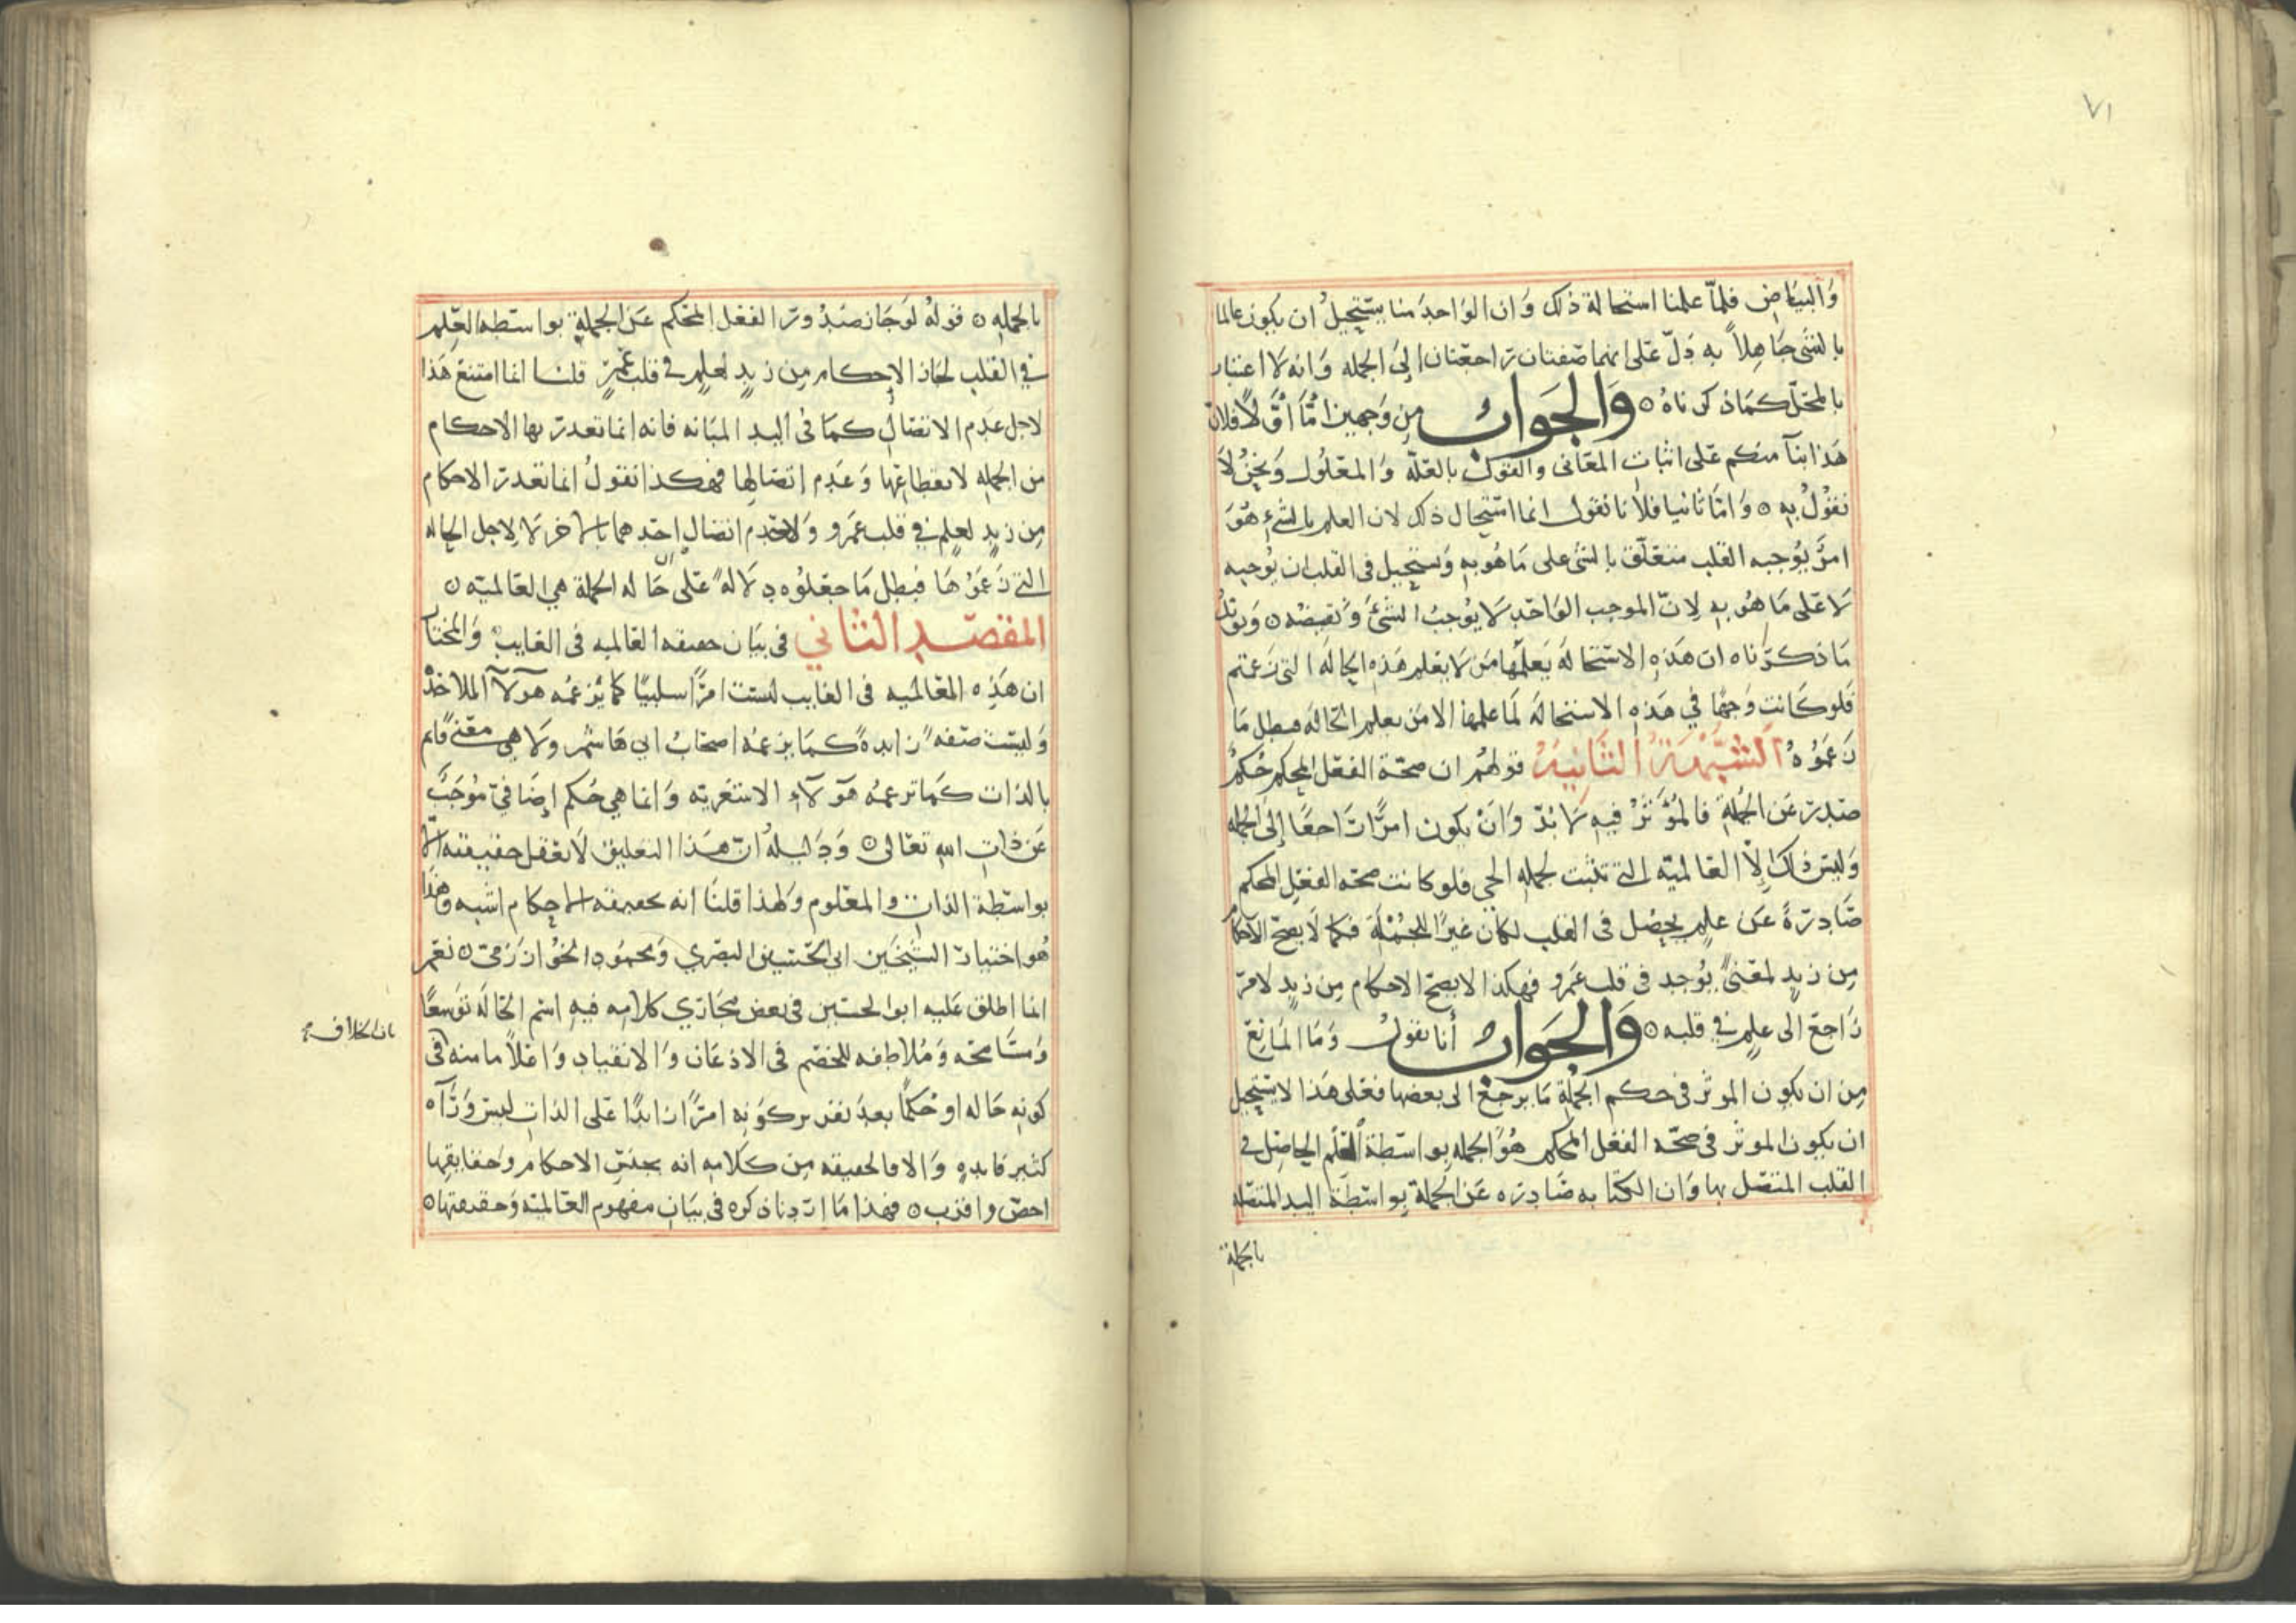 ٧١
والبياض فلما علمنا استحالة ذلك وان الواحد منا يستحيل ان يكون عالما
بالشي جاهلاً به دل على انهما صفتان راجعتان الى الجمله وانه لا اعتبار
بالمحل كما ذكرناه ٥ والجواب من وجهين اما اوّلاً فلان
هذا بنآ منكم على اثبات المعانى والقول بالعلة والمعلول ونحن لا
نقول به ٥ واما ثانيا فلأنا نقول انما استحال ذلك لان العلم بالشئ هو
امرٌ يوجبه القلب متعلق بالشى على ما هو به ويستحيل فى القلب ان يوجبه
لا على ما هو به لان الموجب الواحد لا يوجب الشئ ونقيضه ٥ ويؤيد
ما ذكرناه ان هذه الاستحالة يعلمها من لا يعلم هذه الحالة التى زعمتم
فلو كانت وجهًا في هذه الاستحاله لما علمها الا من يعلم الحاله فبطل ما
زعموه الشبهة الثانية قولهم ان صحة الفعل المحكم حُكمٌ
صدر عن الجملة فالمؤثر فيه لا بد وان يكون امرًا راجعًا إلى الجمله
وليس ذاك إلا العالمية التى تثبت لجمله الحي فلو كانت صحة الفعل المحكم
صادرةً عن علم يحصل فى القلب لكان غيرًا للجملة فكما لا يصح الاحكام
من زيد لمعنىً يوجد فى قلب عمرو فهكذا لا يصح الاحكام من زيد لامر
راجع الى علم في قلبه ٥ والجواب أنا نقول وما المانع
من ان يكون الموثر فى حكم الجملة ما يرجع الى بعضها فعلى هذا لا يستحيل
ان يكون الموثر فى صحة الفعل المحكم هو الجمله بواسطة العلم الحاصل في
القلب المتصل بها وان الكتابه صادره عن الجملة بواسطة اليد المتصله
بالجملة
بالجمله ٥ قوله لو جاز صدور الفعل المحكم عن الجملة بواسطه العلم
في القلب لجاز الإحكام من زيد لعلم في قلب عمرٍو قلنا انما امتنع هذا
لاجل عدم الاتصال كما فى اليد المبانه فانه انما تعذر بها الاحكام
من الجمله لانقطاعها وعدم اتصالها فهكذا نقول انما تعذر الاحكام
من زيد لعلم في قلب عمرو ولعدم اتصال احدهما بالاخر لا لاجل الحاله
التي زعموها فبطل ما جعلوه دلالةً على ان حاله الجملة هي العالمية ٥
المقصد الثاني فى بيان حقيقه العالميه فى الغايب والمختار
ان هذه العالميه فى الغايب ليست امرًا سلبيًا كما يزعمه هولآ الملاحدة
وليست صفةً زايدةً كما يزعمه اصحاب ابي هاشم ولا هي معنىً قايم
بالذات كما تزعمه هولآء الاشعرية وانما هي حكم إضافيّ موجَبٌ
عن ذات الله تعالى ٥ ودليله أن هذا التعليق لا تعقل حقيقته الا
بواسطة الذات والمعلوم ولهذا قلنا انه بحقيقه الاحكام اشبه وهذا
هو اختيار الشيخين ابي الحسين البصري ومحمود الخوارزمى ٥ نعم
انما اطلق عليه ابو الحسين فى بعض مجازي كلامه فيه اسم الحالة توسعًا
ومسامحه وملاطفه للخصم فى الاذعان والانقياد واعلامًا منه فى
بان الخلاف
كونه حاله او حكمًا بعد تقرير كونه امرًا زايدًا على الذات ليس ورآه
كثير فايدهٍ والا فالحقيقه من كلامه انه بجنس الاحكام وحقايقها
اخص واقرب ٥ فهذا ما اردنا ذكره فى بيان مفهوم العالمية وحقيقتها ٥